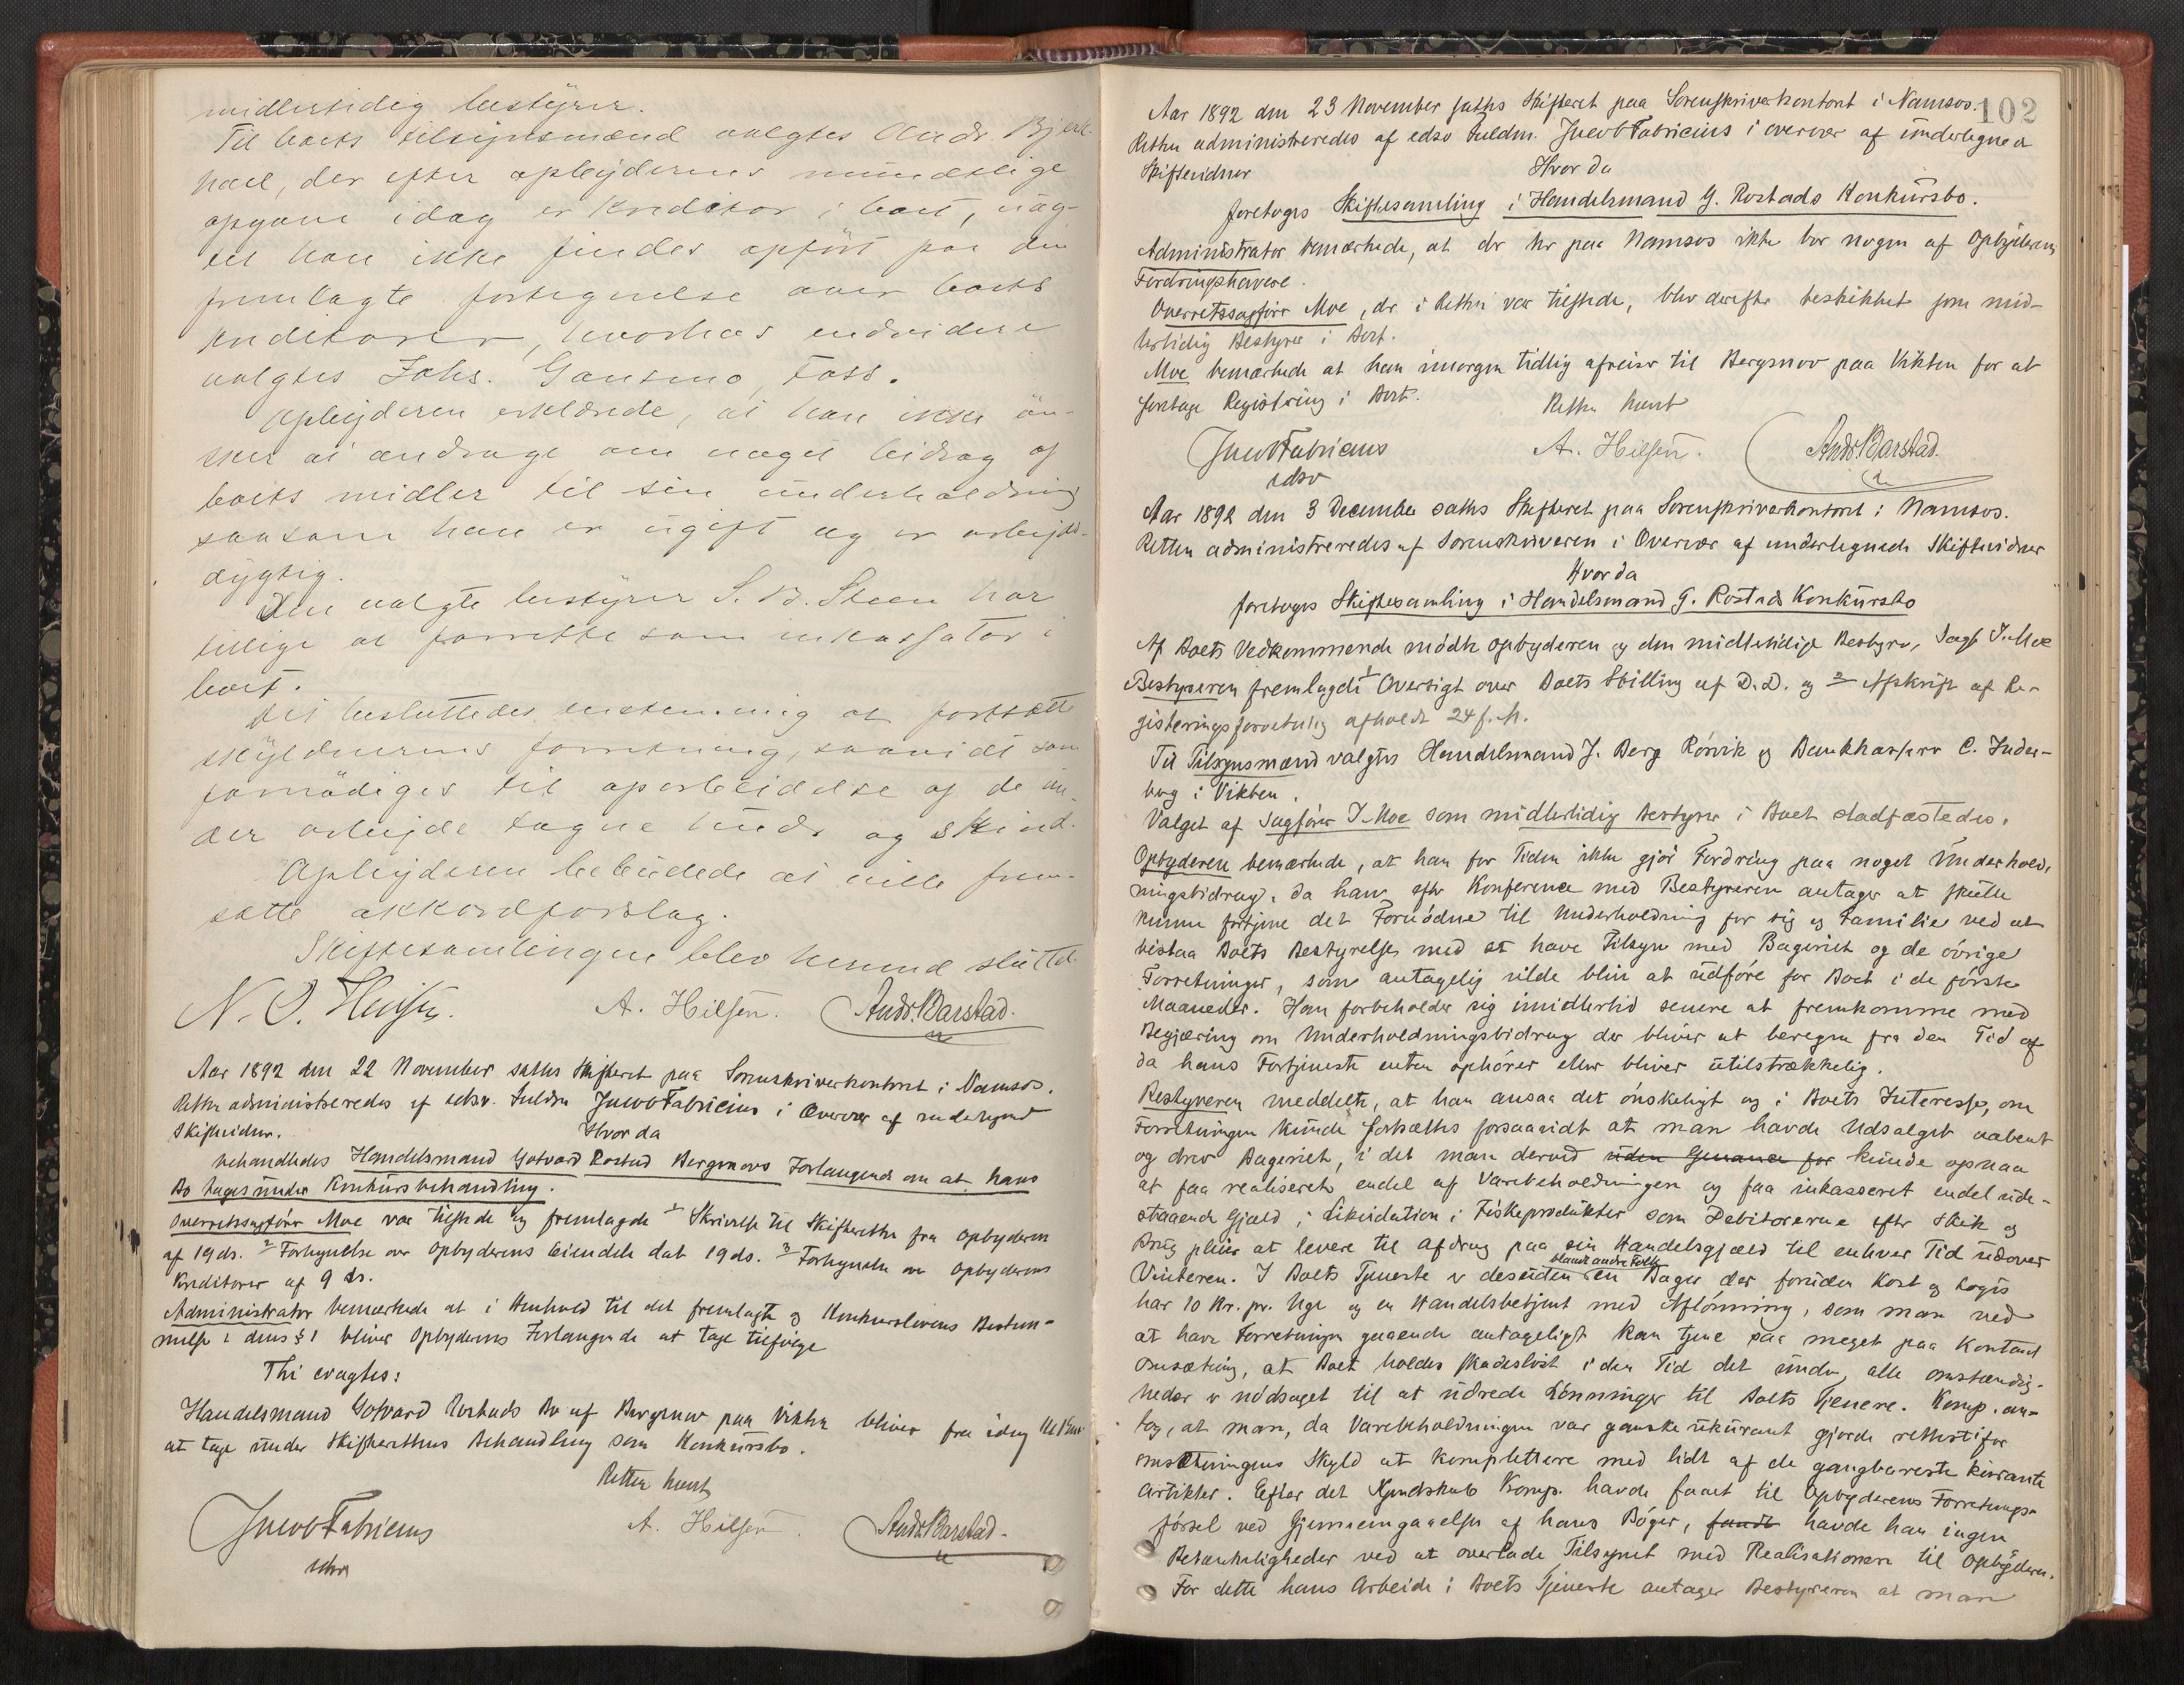 midlertidig bestyrer.
Til boets tilsynsmænd valgtes Andr. Bjerk-
hoel, der efter opbyderens mundtlige
opgave idag er kreditor i boet, uag-
tet han ikke findes opført paa den
fremlagte fortegnelse over boets
kreditorer, hvorhos endvidere
valgtes Johs. Gansmo, Foss.
Opbyderen erklærede, at han ikke øn-
sker at andrage om noget bidrag af
boets midler til sin underholdning
saasom han er ugift og er arbejds-
dygtig.
Den valgte bestyrer S. B. Steen har
tillige at forrette som inkassator i
boet.
Det besluttedes enstemmig at fortsætte
skyldnerens forretning, saavidt som
fornødiges til oparbeidelse af de un-
der arbejde tagne huder og skind.
Opbyderen bebudede at ville frem-
sætte akkordforslag.
Skiftesamlingen blev hermed sluttet.
A. Hilsen. Andr. Barstad.
Aar 1892 den 22 November sattes Skifteret paa Sorenskriverkontoret i Namsos.
Retten administreredes af edsv. Fuldm Jacob Fabricius i Overvær af undertegnede
Skiftevidner.
Hvor da
behandledes Handelsmand Gotvard Rostad Bergsnovs Forlangende om at hans
Bo tages under Konkursbehandling.
Overretssagfører Moe var tilstede og fremlagde 1 Skrivelse til Skifteretten fra Opbyderen
af 19 ds. 2 Fortegnelse over Opbyderens Eiendele dat 19 ds. 3 Fortegnelse over Opbyderens
Kreditorer af 9 ds.
Administrator bemærkede at i Henhold til det fremlagte og Konkurslovens Bestem-
melse i dens § 1 bliver Opbyderens Forlangende at tage tilfølge
Thi eragtes:
Handelsmand Gotvard Rostads Bo af Bergsnov paa Vikten bliver fra idag
at tage under Skifterettens Behandling som Konkursbo.
Retten hævet
Jacob Fabricius A. Hilsen. Andr. Barstad.
edsv
102
Aar 1892 den 23 November sattes Skifteret paa Sorenskriverkontoret i Namsos.
Retten administreredes af edsv Fuldm. Jacob Fabricius i overvær af undertegnede
Skiftevidner
Hvor da
foretoges Skiftesamling i Handelsmand G. Rostads Konkursbo.
Administrator bemærkede, at der her paa Namsos ikke bor nogen af Opbyderens
Fordringshavere.
Overretssagfører Moe, der i Retten var tilstede, blev derefter beskikket som mid-
lertidig Bestyrer i Boet.
Moe bemærkede at han imorgen tidlig afreiser til Bergsnov paa Vikten for at
foretage Registering i Boet.
Retten hævet
Jacob Fabricius A. Hilsen. Andr. Barstad.
edsv
Aar 1892 den 3 December sattes Skifteret paa Sorenskriverkontoret i Namsos.
Retten administreredes af Sorenskriveren i Overvær af undertegnede Skiftevidner
Hvor da
foretoges Skiftesamling i Handelsmand G. Rostads Konkursbo
Af Boets Vedkommende mødte opbyderen og den midlertidige Bestyrer, Sagf. J. Moe
Bestyreren fremlagde 1 Oversigt over Boets Stilling af D.D. og 2 Afskrift af Re-
gisteringsforretning afholdt 24 f. M.
Til Tilsynsmænd valgtes Handelsmand J. Berg Rørvik og Bankkasserer C. Inder-
berg i Vikten.
Valget af Sagfører J. Moe som midlertidig Bestyrer i Boet stadfæstedes.
Opbyderen bemærkede, at han for Tiden ikke gjør Fordring paa noget Underhold-
ningsbidrag, da han efter Konference med Bestyreren antager at skulle
kunne fortjene det Fornødne til Underholdning for sig og Familie ved at
bistaa Boets Bestyrelse med at have Tilsyn med Bageriet og de øvrige
Forretninger, som antagelig vilde blive at udføre for Boet i de første
Maaneder. Han forbeholder sig imidlertid senere at fremkomme med
Begjæring om Underholdningsbidrag der bliver at beregne fra den Tid af
da hans Fortjeneste enten ophører eller bliver utilstrækkelig.
Bestyreren meddelte, at han ansaa det ønskeligt og i Boets Interesse, om
Forretningen kunde fortsættes forsaavidt at man havde Udsalget aabent
og drev Bageriet, i det man derved uden Genance for kunde opnaa
at faa realiseret endel af Varebeholdningen og faa inkasseret endel ude-
staaende Gjæld i Likvidation i Fiskeprodukter som Debitorerne efter Skik og
Brug pleier at levere til Afdrag paa sin Handelsgjæld til enhver Tid udover
Vinteren. I Boets Tjeneste er desuden blandt andre Folk en Bager der foruden Kost og Logis
har 10 Kr. pr. Uge og en Handelsbetjent med Aflønning, som man ved
at have Forretningen gaaende antageligt kan tjene saa meget paa Kontant
Omsætning, at Boet holdes skadesløst i den Tid det under alle omstændig-
heder er nødsaget til at udrede Lønninger til Boets Tjenere. Komp. an-
tog, at man, da Varebeholdningen var ganske ukurant gjorde rettest i for
omsætningens Skyld at komplettere med lidt af de gangbareste kurante
Artikler. Efter det Kjendskab Komp. havde faaet til Opbyderens Forretnings-
førsel ved Gjennemgaaelse af hans Bøger, fandt havde han ingen
Betænkeligheder ved at overlade Tilsynet med Realisationen til Opbyderen.
For dette hans Arbeide i Boets Tjeneste antager Bestyreren at man